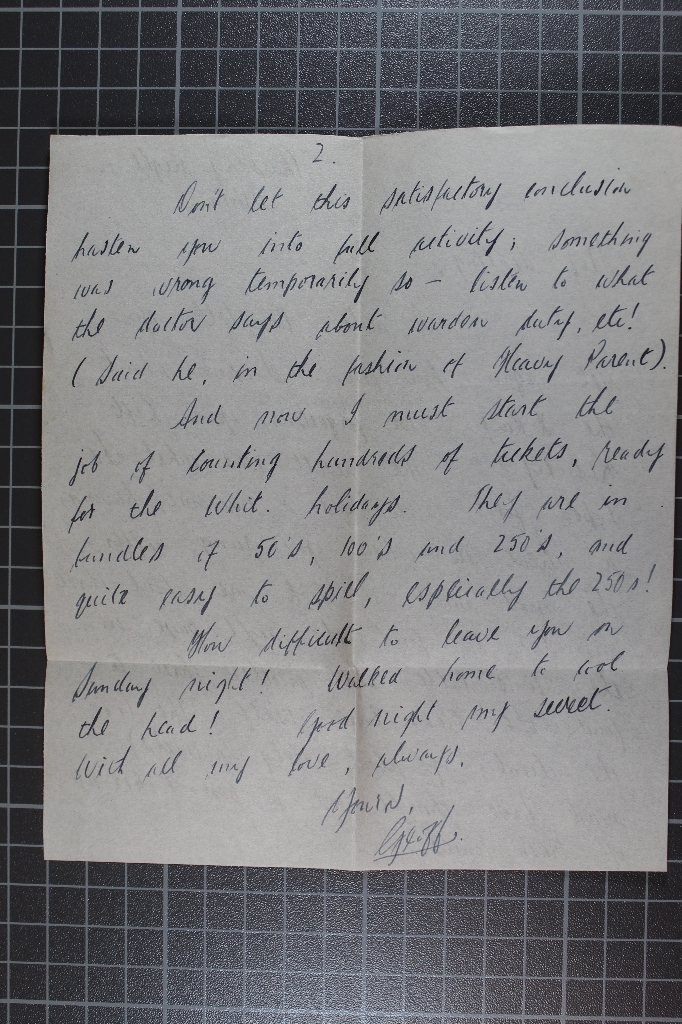 2.
Don't let this satisfactory conclusion
hasten you into full activity; something
was wrong temporarily so – listen to what
the doctor says about warden duty, etc!
(Said he, in the fashion of Heavy Parent).
And now I must start the
job of counting hundreds of tickets, ready
for the Whit. holidays. They are in
bundles of 50's, 100's and 250's, and
quite easy to spill, especially the 250s!
How difficult to leave you on
Sunday night! Walked home to cool
the head! Good night my sweet.
With all my love, always,
Yours,
Geoff.